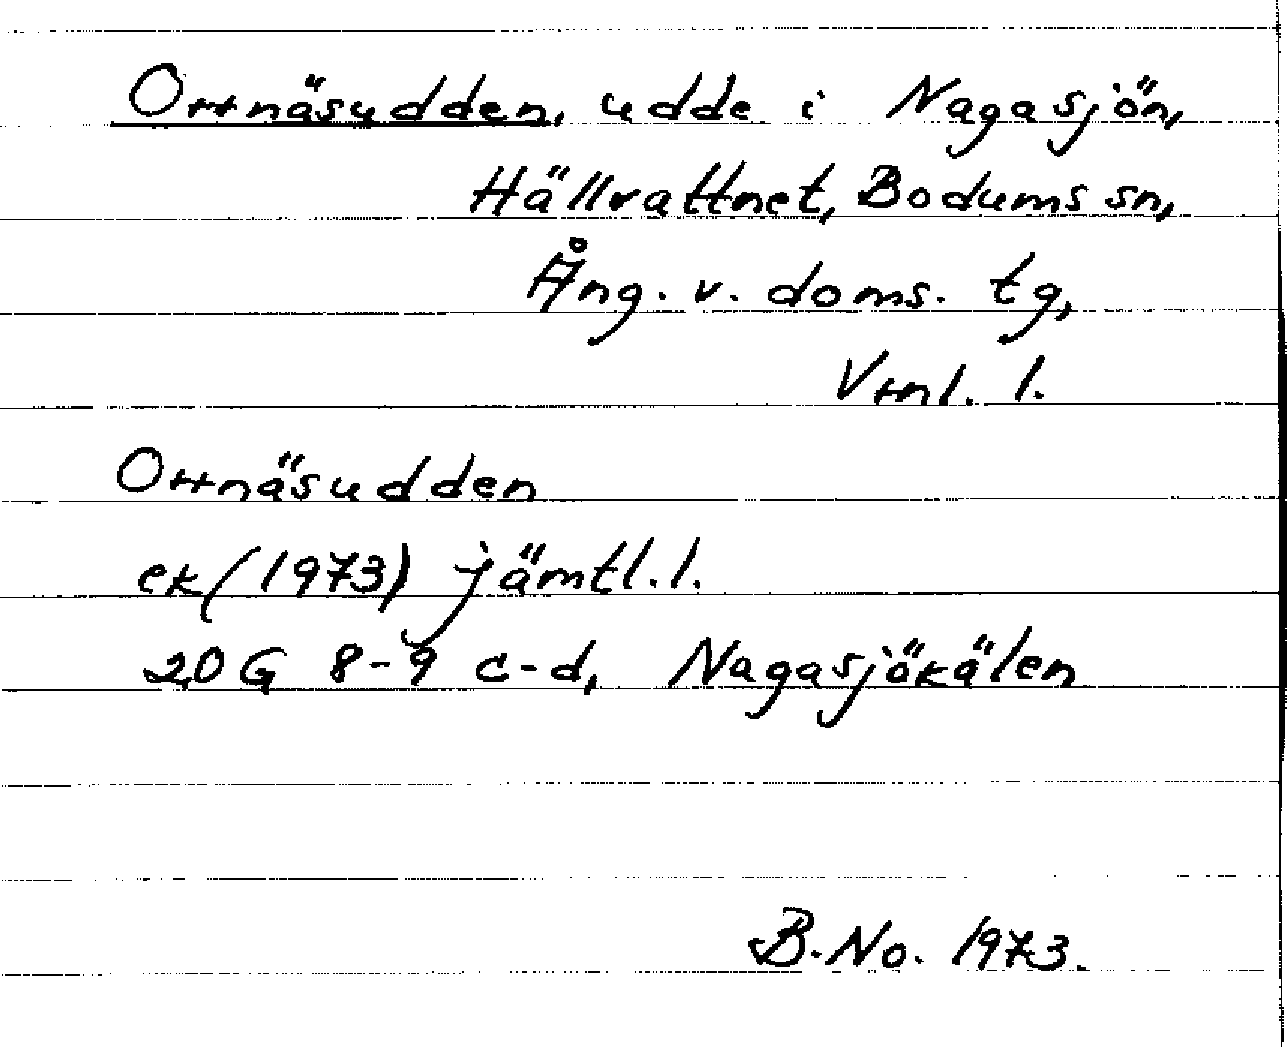 Orrnäsudden, udde i Nagasjön,
Hällvattnet, Bodums sn,
Ång. v. doms. tg,
Vrnl. l.
Orrnäsudden
ek (1973) jämtl. l.
20 G 8-9 c-d, Nagasjökälen
B. No. 1973.